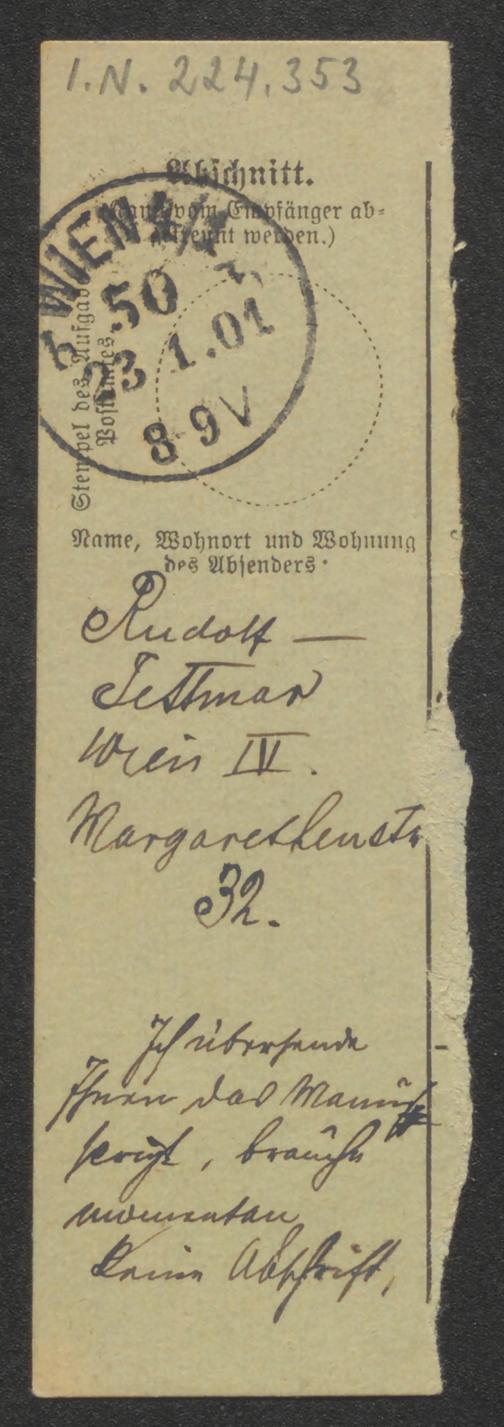 I.N. 224.353
Abschnitt.
(Kann vom Empfänger ab-
getrennt werden.)
WIEN
50
23 1.01
8-9V
Stempel des Aufgabs
Postamtes.
Name, Wohnort und Wohnung
des Absenders.
Rudolf —
Tettmar
Wien IV.
Margarethenstr
32.
Ich übersende
Ihnen das Manu
skript, brauche
momentan
keine Abschrift,